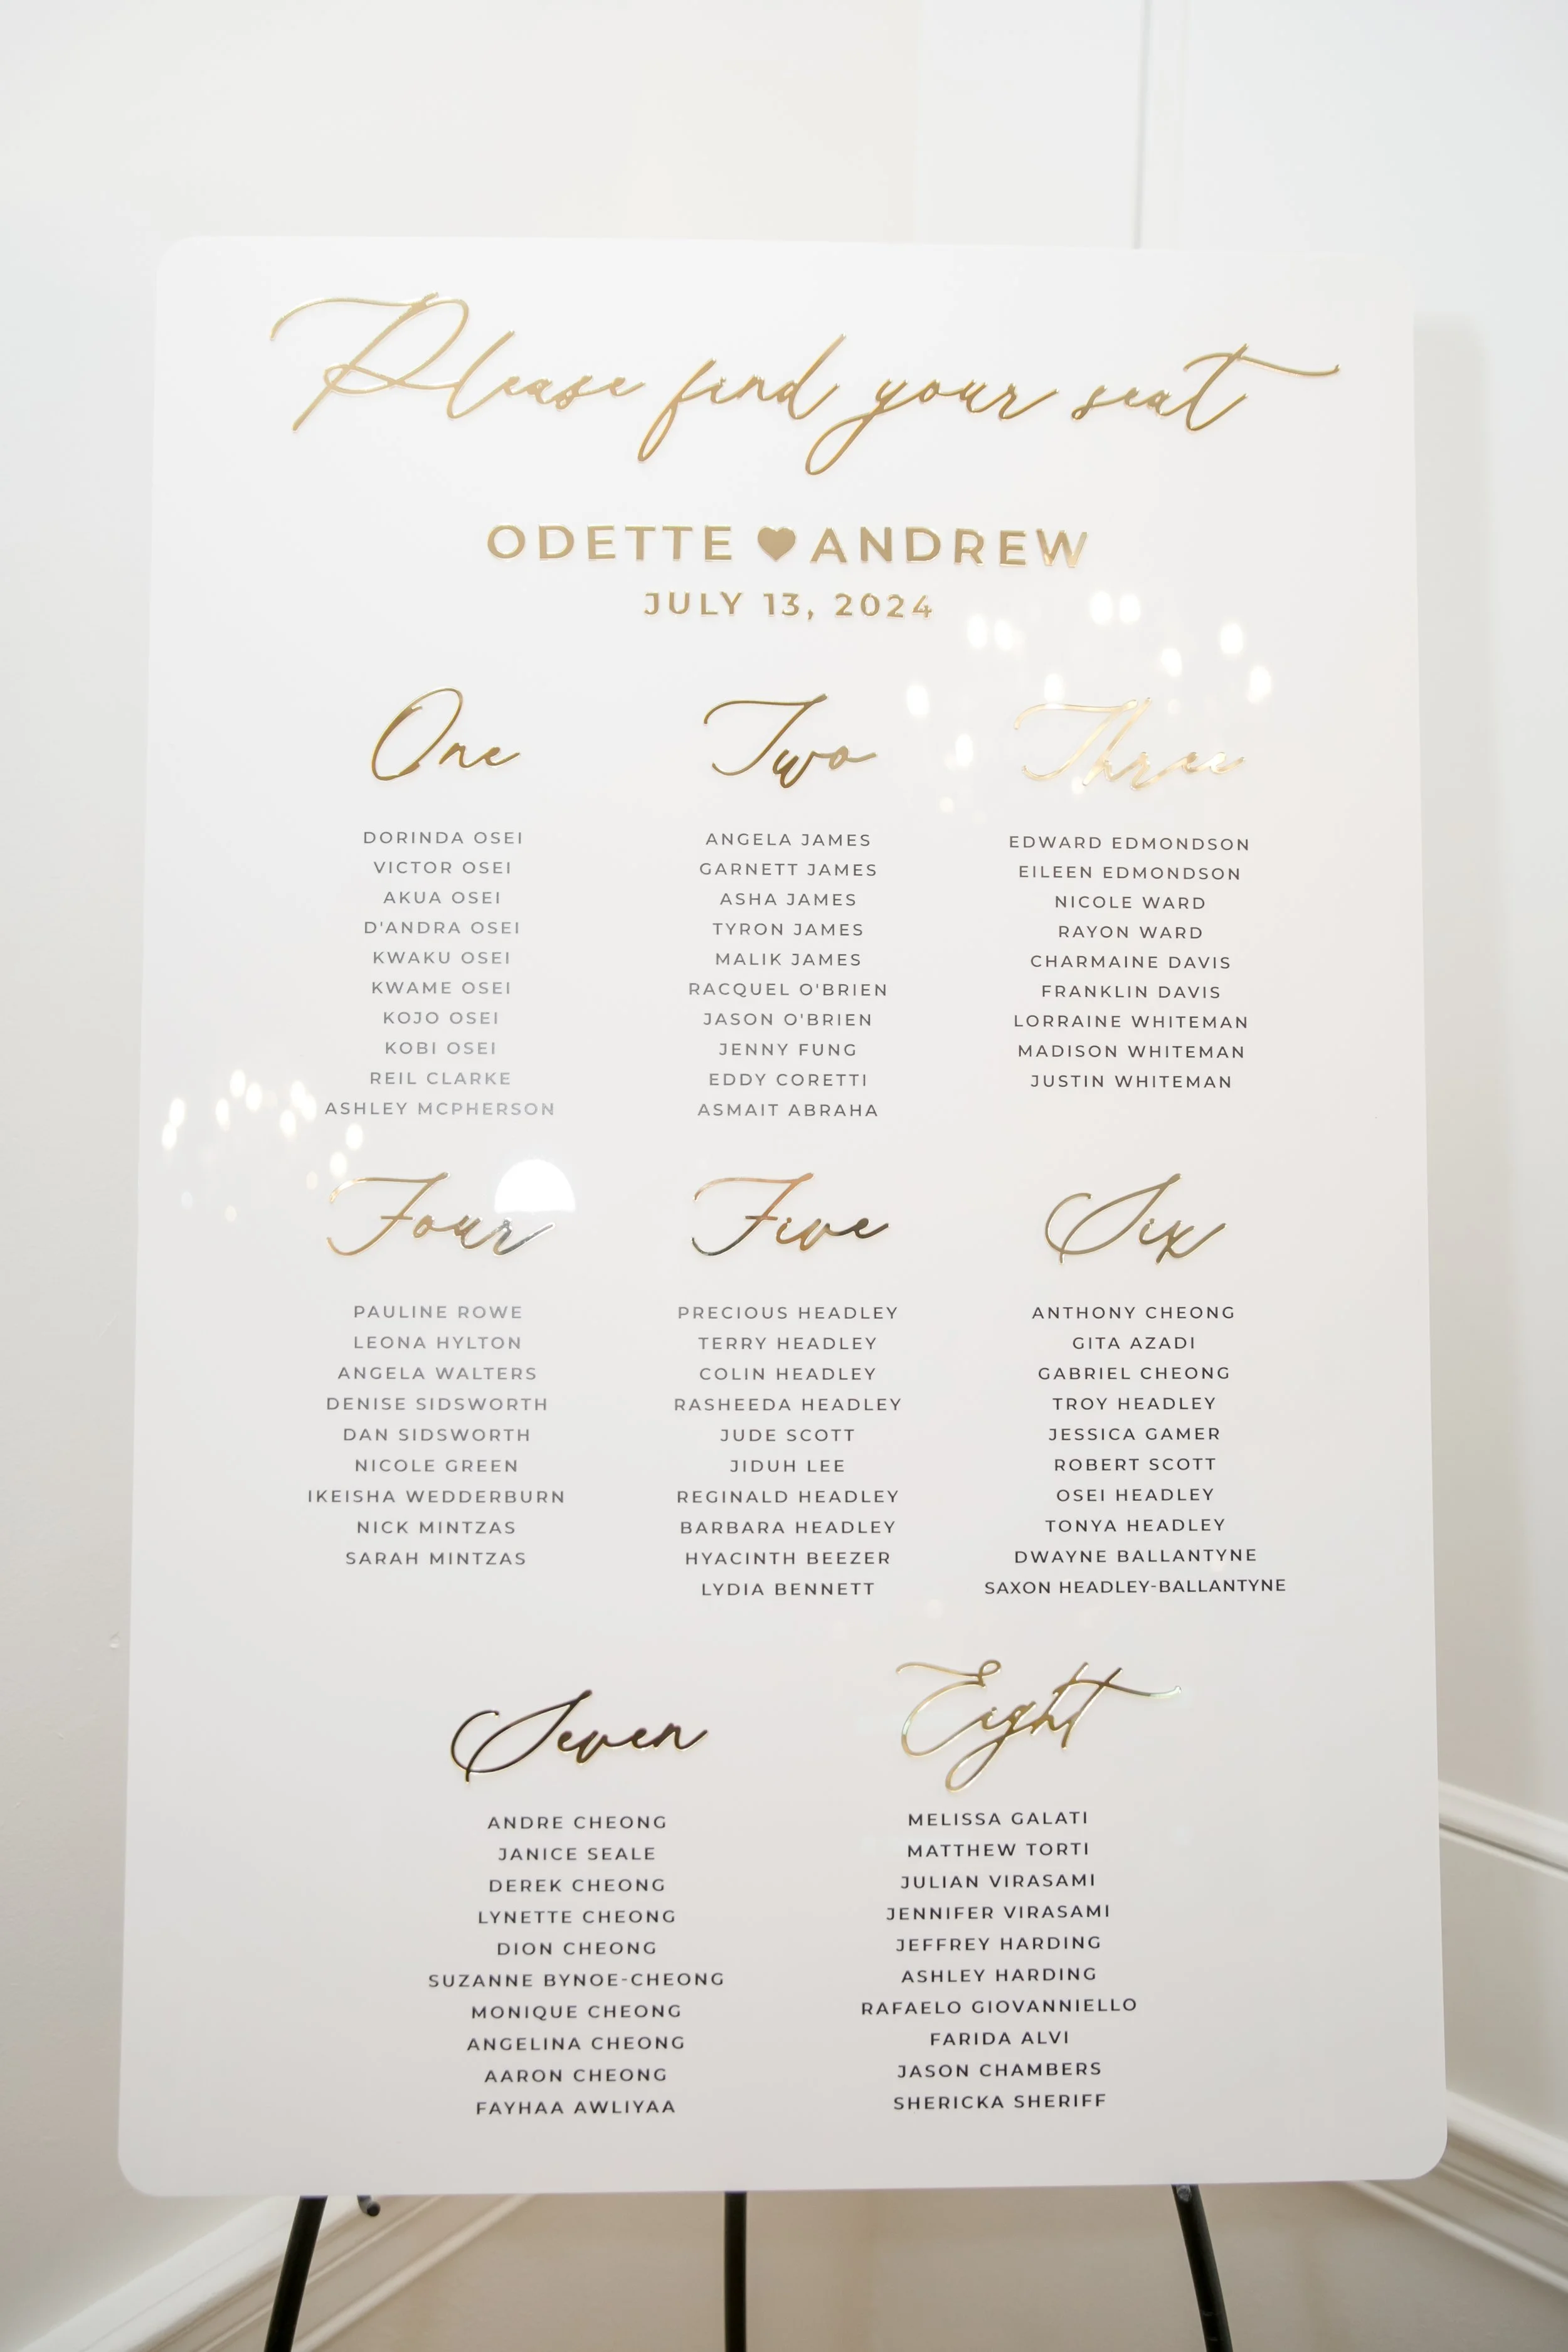 Please find your seat
ODETTE ♥ ANDREW
JULY 13, 2024
One
DORINDA OSEI
VICTOR OSEI
AKUA OSEI
D'ANDRA OSEI
KWAKU OSEI
KWAME OSEI
KOJO OSEI
KOBI OSEI
REIL CLARKE
ASHLEY MCPHERSON
Two
ANGELA JAMES
GARNETT JAMES
ASHA JAMES
TYRON JAMES
MALIK JAMES
RACQUEL O'BRIEN
JASON O'BRIEN
JENNY FUNG
EDDY CORETTI
ASMAIT ABRAHA
Three
EDWARD EDMONDSON
EILEEN EDMONDSON
NICOLE WARD
RAYON WARD
CHARMAINE DAVIS
FRANKLIN DAVIS
LORRAINE WHITEMAN
MADISON WHITEMAN
JUSTIN WHITEMAN
Four
PAULINE ROWE
LEONA HYLTON
ANGELA WALTERS
DENISE SIDSWORTH
DAN SIDSWORTH
NICOLE GREEN
IKEISHA WEDDERBURN
NICK MINTZAS
SARAH MINTZAS
Five
PRECIOUS HEADLEY
TERRY HEADLEY
COLIN HEADLEY
RASHEEDA HEADLEY
JUDE SCOTT
JIDUH LEE
REGINALD HEADLEY
BARBARA HEADLEY
HYACINTH BEEZER
LYDIA BENNETT
Six
ANTHONY CHEONG
GITA AZADI
GABRIEL CHEONG
TROY HEADLEY
JESSICA GAMER
ROBERT SCOTT
OSEI HEADLEY
TONYA HEADLEY
DWAYNE BALLANTYNE
SAXON HEADLEY-BALLANTYNE
Seven
ANDRE CHEONG
JANICE SEALE
DEREK CHEONG
LYNETTE CHEONG
DION CHEONG
SUZANNE BYNOE-CHEONG
MONIQUE CHEONG
ANGELINA CHEONG
AARON CHEONG
FAYHAA AWLIYAA
Eight
MELISSA GALATI
MATTHEW TORTI
JULIAN VIRASAMI
JENNIFER VIRASAMI
JEFFREY HARDING
ASHLEY HARDING
RAFAELO GIOVANNIELLO
FARIDA ALVI
JASON CHAMBERS
SHERICKA SHERIFF